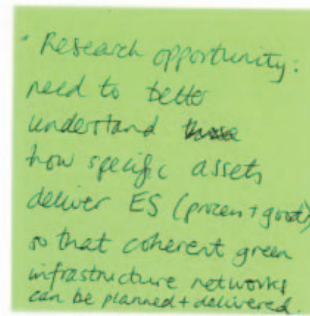 · Research opportunity:
need to better
understand
how specific assets
deliver ES (prozen + good)
so that coherent green
infrastructure networks
can be planned + delivered.